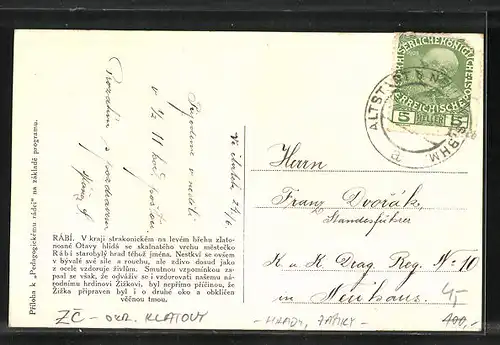 Příloha k „Pedagogickému rádci“ na základě programu.
24/6
Přijedeme v neděli
v ½ 11 hod.
RÁBÍ. V kraji strakonickém na levém břehu zlato-
nosné Otavy hlídá se skalnatého vrchu městečko
Rábí starobylý hrad téhož jména. Nestkví se ovšem
v bývalé své síle a rouchu, ale zdivo dosud jako
z ocele vzdoruje živlům. Smutnou vzpomínkou za-
psal se však, že odváživ se i vzdorovati našemu ná-
rodnímu hrdinovi Žižkovi, byl nepřímo příčinou, že
Žižka připraven byl i o druhé oko a obklíčen
věčnou tmou.
KAISERLICHE KÖNIGLICHE
ÖSTERREICHISCHE POST
5 HELLER 5
ALTSTADT
Herrn
Franz Dvořák,
Standesführer
K. u K. Drag. Reg. № 10
in Neuhaus.
4,-
400,-
ZČ - OKR. KLATOVY
- HRADY, ZÁMKY -